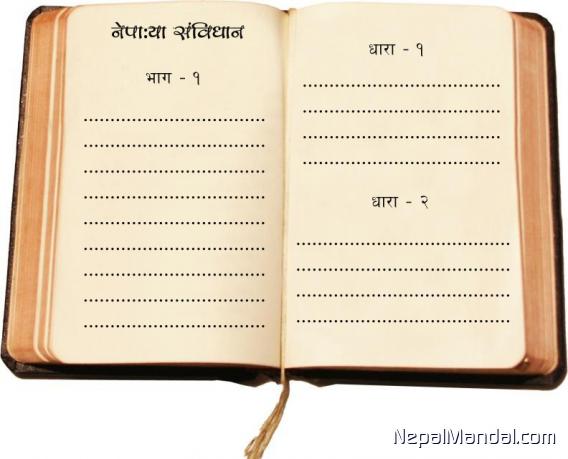 नेपाःया संविधान
भाग - १
धारा - १
धारा - २
NepalMandal.com